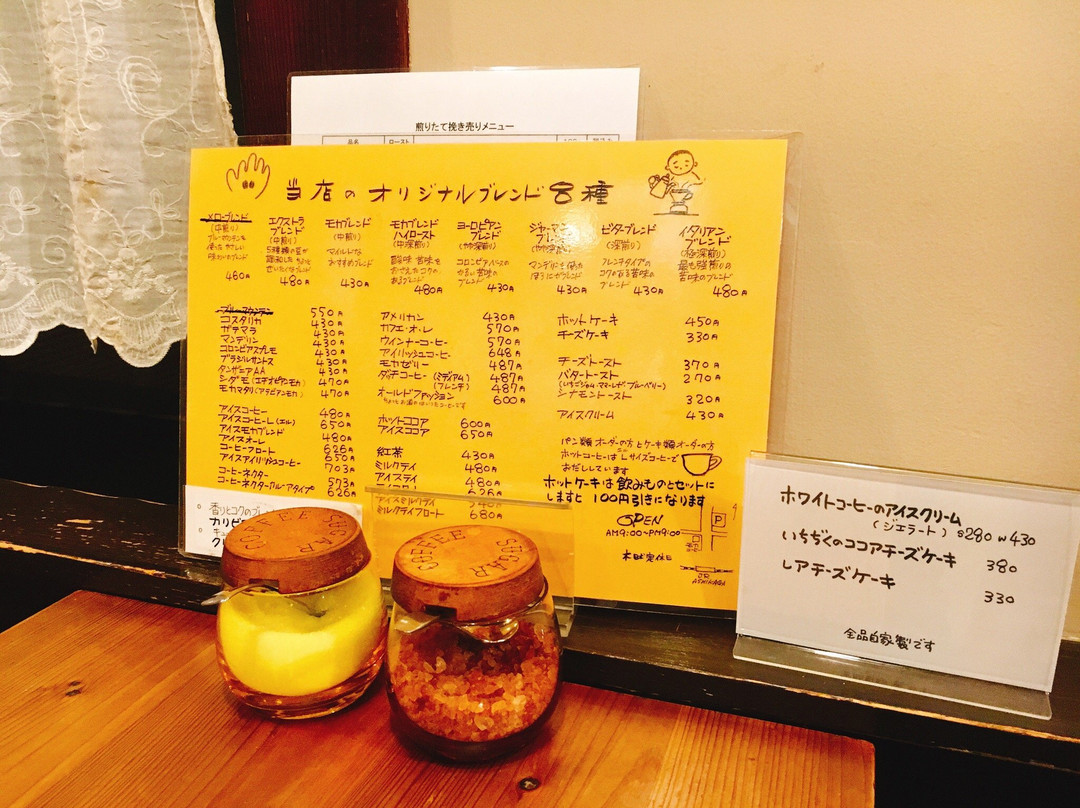 煎りたて挽き売りメニュー
品名 ロースト
当店のオリジナルブレンド8種
メローブレンド
(中煎り)
460円
エクストラ
ブレンド
(中煎り)
480円
モカブレンド
(中煎り)
マイルドな
おすすめブレンド
430円
モカブレンド
ハイロースト
(中深煎り)
酸味 苦味を
おさえたコクの
あるブレンド
480円
ヨーロピアン
ブレンド
(やや深煎り)
コロンビアベースの
やわい苦味の
ブレンド
430円
ジャーマン
ブレンド
(やや深煎り)
430円
ビターブレンド
(深煎り)
フレンチタイプの
コクのある苦味の
ブレンド
430円
イタリアン
ブレンド
(極深煎り)
最も強煎りの
苦味のブレンド
480円
ブルーマウンテン 550円
コスタリカ 430円
ガテマラ 430円
マンデリン 430円
コロンビアスプレモ 430円
ブラジルサントス 430円
タンザニアAA 430円
シダモ(エチオピアンモカ) 470円
モカマタリ(アラビアンモカ) 470円
アイスコーヒー 480円
アイスコーヒーL(エル) 650円
アイスモカブレンド 480円
アイスオーレ 480円
コーヒーフロート 626円
アイスアイリッシュコーヒー 650円
703円
コーヒーネクター 573円
コーヒーネクターカルーアタイプ 626円
アメリカン 430円
カフェ・オ・レ 570円
ウインナーコーヒー 570円
アイリッシュコーヒー 648円
モカゼリー 487円
ダッチコーヒー (ミディアム) 487円
(フレンチ) 487円
オールドファッション 600円
ホットココア 600円
アイスココア 650円
紅茶 430円
ミルクティ 480円
アイスティ 480円
626円
アイスミルクティ 540円
ミルクティフロート 680円
ホットケーキ 450円
チーズケーキ 330円
チーズトースト 370円
バタートースト 270円
(いちごジャム・ママーレード・ブルーベリー)
シナモントースト 320円
アイスクリーム 430円
パン類オーダーの方とケーキ類オーダーの方
ホットコーヒーはLサイズコーヒーで
おだししています
ホットケーキは飲みものとセットに
しますと100円引きになります
OPEN
AM9:00~PM9:00
木曜定休日
P
JR
ASHIKAGA
香りとコクのブレ
COFFEE SUGAR
COFFEE SUGAR
ホワイトコーヒーのアイスクリーム
(ジェラート) S290 W430
いちぢくのココアチーズケーキ 380
レアチーズケーキ 330
全品自家製です